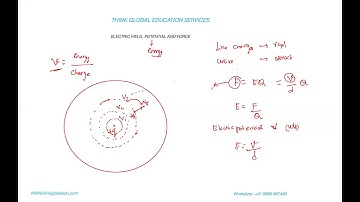 THINK GLOBAL EDUCATION SERVICES
ELECTRIC FIELD, POTENTIAL AND FORCE
Energy
V = Energy / Charge
Like charge → repl
unlike → attract
F = EQ = (V/d) Q
E = F/Q
Electric potential
E = V/d
WWW.thinkglobaledu.com